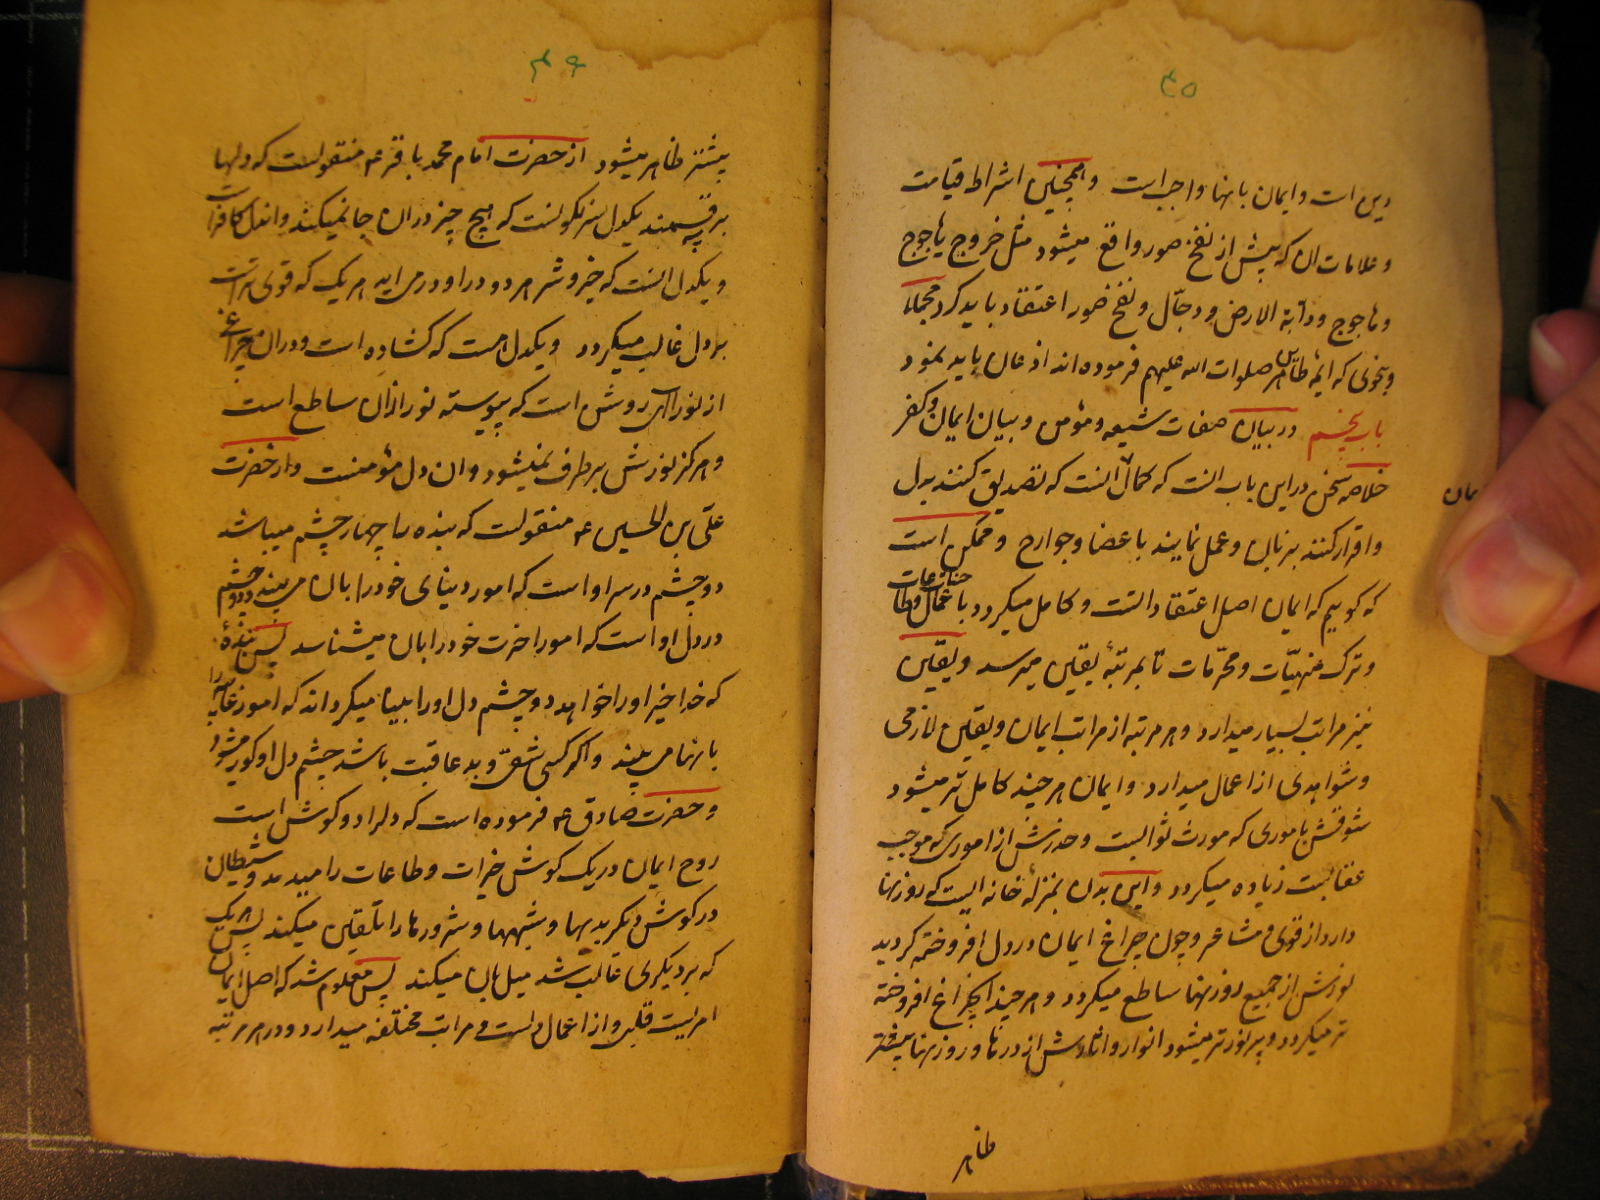 ۴۵
دین است و ایمان بانها واجب است و همچنین اشراط قیامت
و علامات ان که پیش از نفخ صور واقع میشود مثل خروج یاجوج
و ماجوج و دابة الارض و دجّال و نفخ صور اعتقاد باید کرد مجملا
و بنحوی که ائمهٔ طاهرین صلوات الله علیهم فرموده اند اذعان باید نمود
باب پنجم در بیان صفات شیعه و مؤمن و بیان ایمان و کفر
خلاصه سخن در این باب انست که کمال ایمان انست که تصدیق کنند بدل
و اقرار کنند بزبان و عمل نمایند باعضا و جوارح و ممکن است
که گوییم که ایمان اصل اعتقاد انست و کامل میگردد باعمال حسنه و طاعات
و ترک منهیّات و محرّمات تا بمرتبهٔ یقین میرسد و یقین
نیز مراتب بسیار میدارد و هر مرتبه از مراتب ایمان و یقین لازمی
و شواهدی از اعمال میدارد و ایمان هر چند کامل تر میشود
شوقش باموری که مورث ثوابست و حذرش از اموری که موجب
عقابست زیاده میگردد و این بدن بمنزلهٔ خانه ایست که روزنها
دارد از قوی و مشاعر و چون چراغ ایمان در دل افروخته گردید
نورش از جمیع روزنها ساطع میگردد و هر چند انچراغ افروخته
تر میگردد و پر نورتر میشود انوار و اثارش از درها و روزنها بیشتر
ظاهر
۴۶
بیشتر ظاهر میشود از حضرت امام محمد باقر ع منقولست که دلها
بر سه قسمند یکدل سرنگونست که هیچ چیز در ان جا نمیکند و اندل کافر است
و یکدل انست که خیر و شر هر دو در او در می اید هر یک که قوی تر است
بر دل غالب میگردد و یکدل هست که گشاده است و در ان چراغی
از نور الهی روشن است که پیوسته نور از ان ساطع است
و هرگز نورش برطرف نمیشود و ان دل مؤمنست و از حضرت
علیّ بن الحسین ع منقولست که بنده را چهار چشم میباشد
دو چشم در سر او است که امور دنیای خود را بان می بیند و دو چشم
در دل او است که امور اخرت خود را بان میشناسد پس بندهٔ
که خدا خیر او را خواهد دو چشم دل او را بینا میگرداند که امور غایب را
بانها می بیند و اگر کسی شقی و بد عاقبت باشد چشم دل او کور میشود
و حضرت صادق ع فرموده است که دل را دو گوش است
روح ایمان در یک گوش خیرات و طاعات را میدمد و شیطان
در گوش دیگر بدیها و شبهها و شرورها را تلقین میکند پس هر یک
که بر دیگری غالب شد میل بان میکند پس معلوم شد که اصل ایمان
امریست قلبی و از اعمال است و مراتب مختلفه میدارد و در هر مرتبه